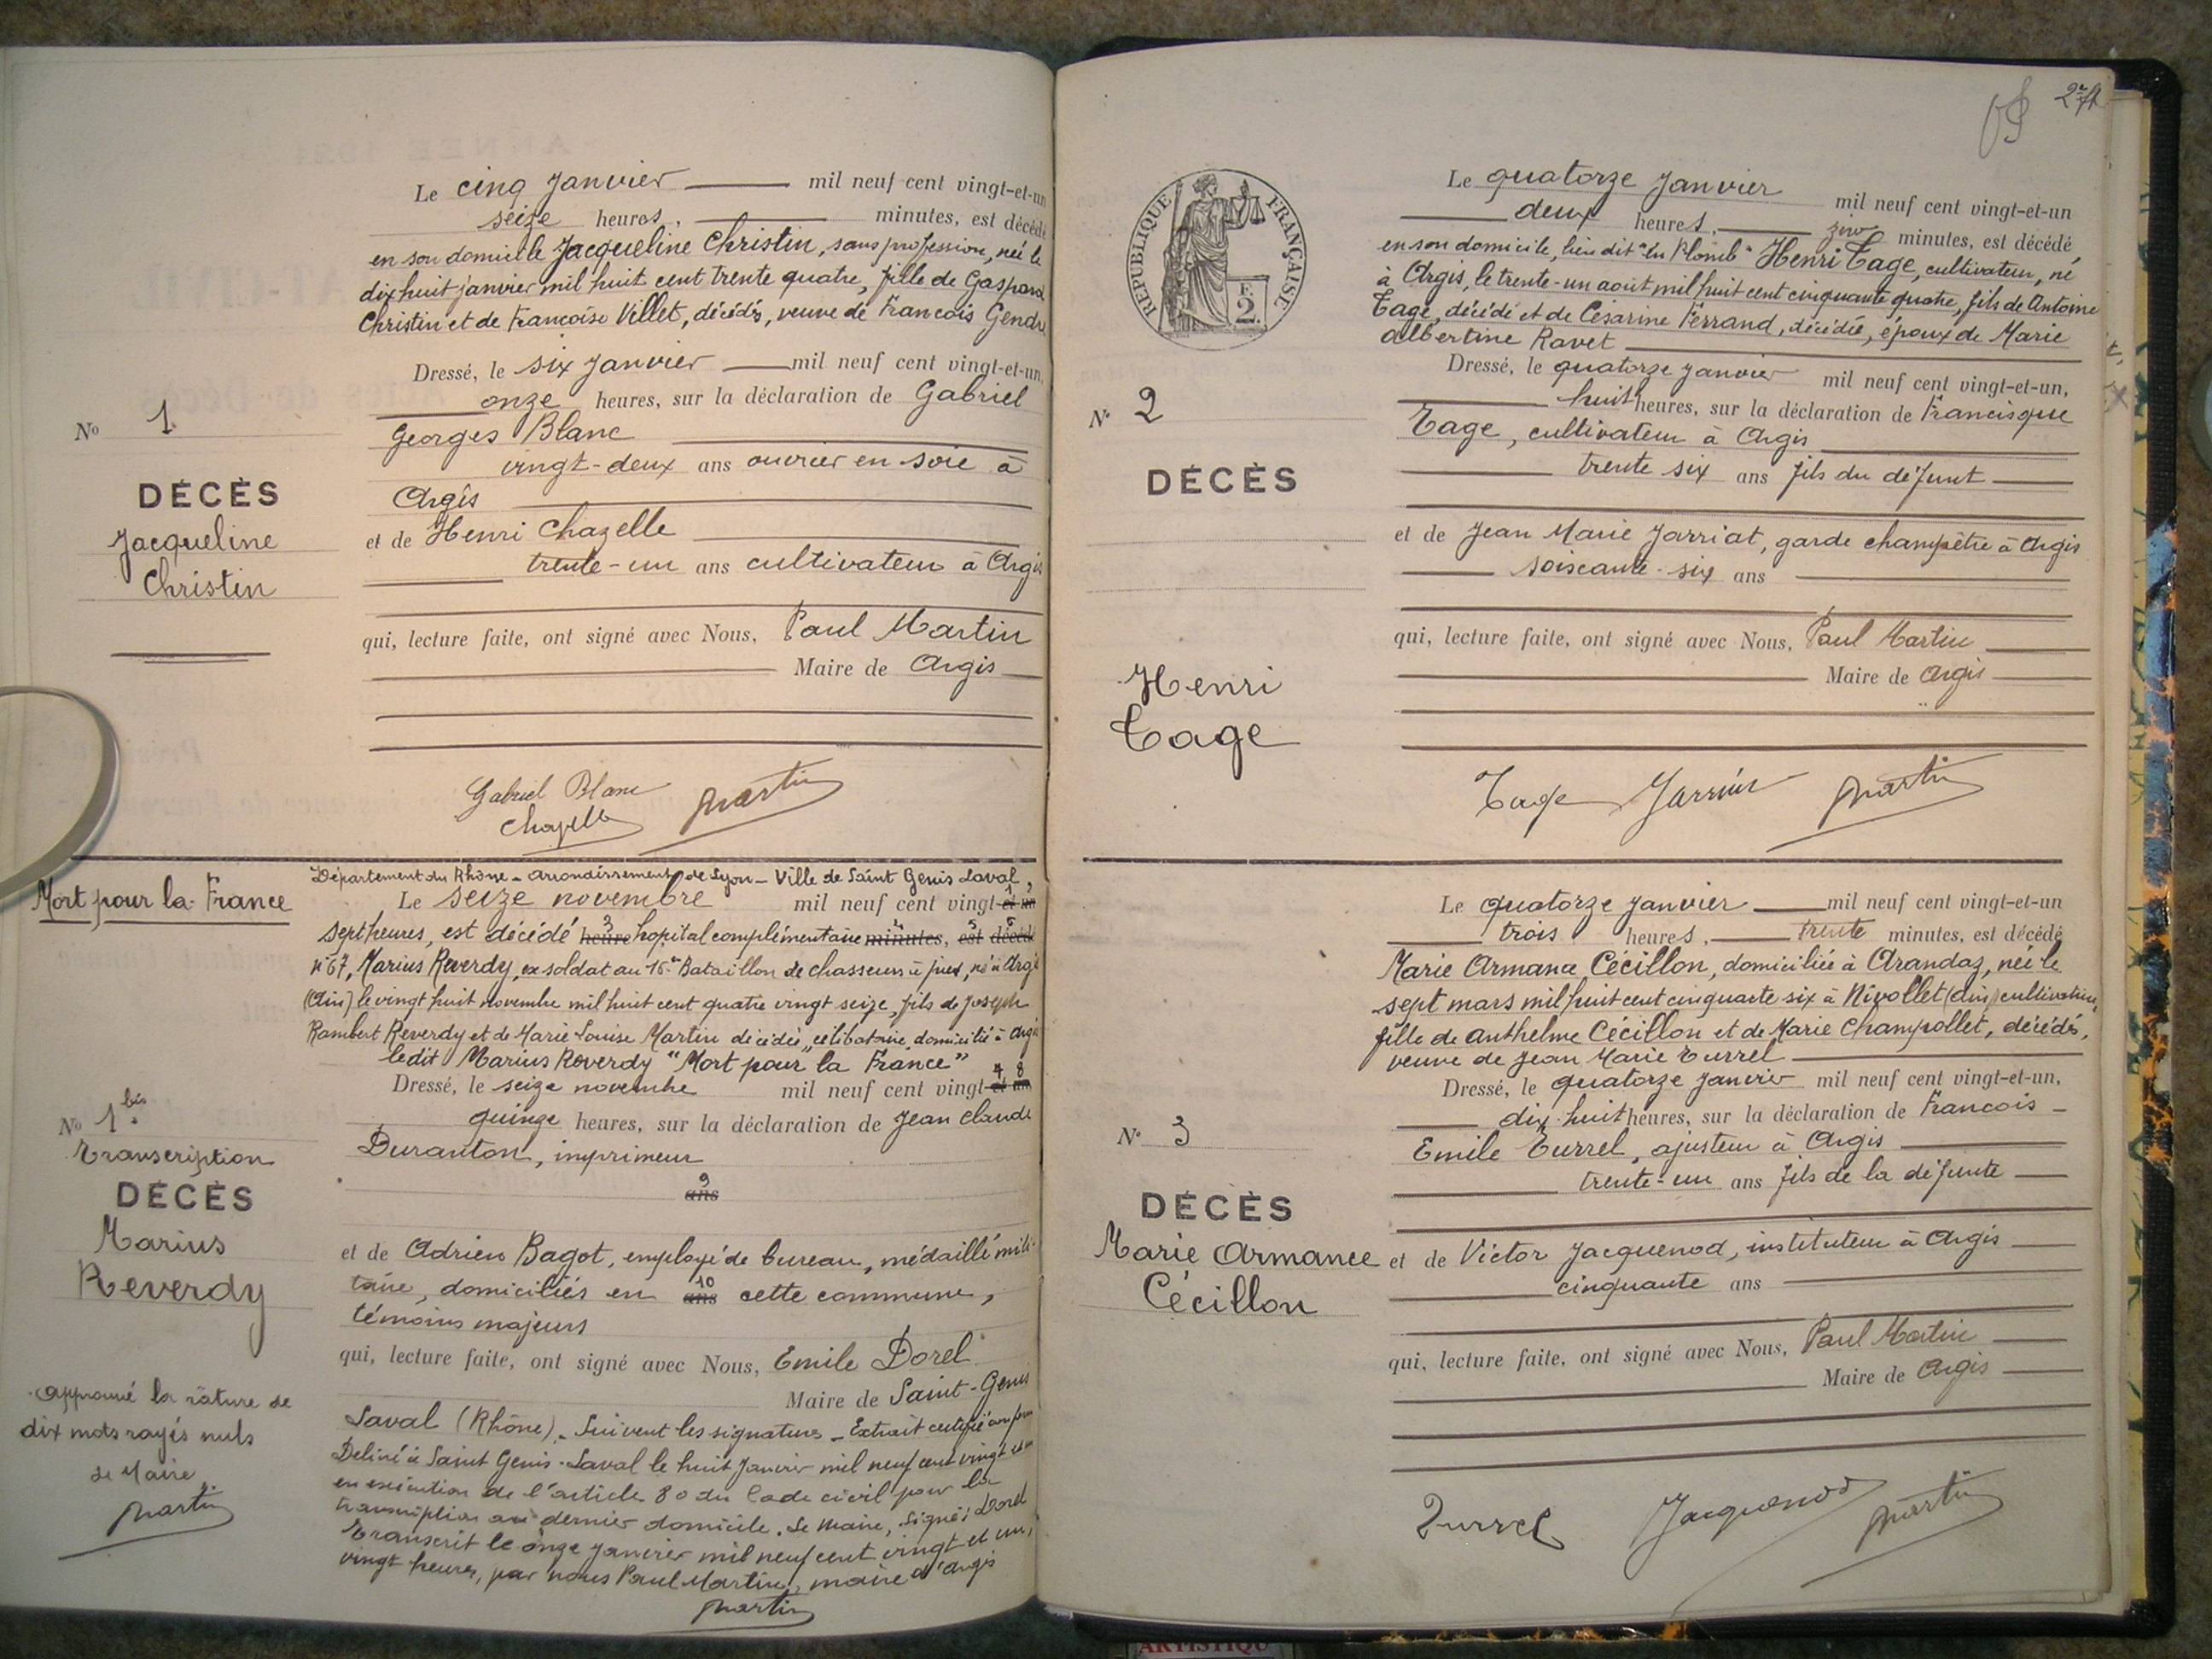 Le cinq Janvier mil neuf cent vingt-et-un
seize heures, minutes, est décédé
en son domicile Jacqueline Christin, sans profession, née le
dix huit janvier mil huit cent trente quatre, fille de Gaspard
Christin et de Françoise Villet, décédés, veuve de Francois Gendre
Dressé, le six Janvier mil neuf cent vingt-et-un,
onze heures, sur la déclaration de Gabriel
Georges Blanc
vingt-deux ans ouvrier en soie à
Argis
et de Henri Chazelle
trente-un ans cultivateur à Argis
qui, lecture faite, ont signé avec Nous, Paul Martin
Maire de Argis
No 1
DÉCÈS
Jacqueline
Christin
Gabriel Blanc
Chazelle
Martin
Mort pour la France
Département du Rhône - Arrondissement de Lyon - Ville de Saint Genis Laval,
Le seize novembre mil neuf cent vingt-et un
sept heures, est décédé heure hopital complémentaire minutes, est décédé
n°67, Marius Reverdy, ex soldat au 16e Bataillon de chasseurs à pied, né à Argis
(Ain) le vingt huit novembre mil huit cent quatre vingt seize, fils de Joseph
Rambert Reverdy et de Marie Louise Martin décédée, célibataire, domicilié à Argis
ledit Marius Reverdy "Mort pour la France"
Dressé, le seize novembre mil neuf cent vingt-et un
quinze heures, sur la déclaration de Jean Claude
Duranton, imprimeur
ans
et de Adrien Bagot, employé de bureau, médaillé mili-
taire, domiciliés en ans cette commune,
témoins majeurs
qui, lecture faite, ont signé avec Nous, Emile Dorel
Maire de Saint-Genis
Laval (Rhône). Suivent les signatures - Extrait certifié conforme
Délivré à Saint Genis-Laval le huit Janvier mil neuf cent vingt et un
en exécution de l'article 80 du Code civil pour la
transcription au dernier domicile. Le Maire, signé: Dorel
Transcrit le onze janvier mil neuf cent vingt et un,
vingt heures, par nous Paul Martin, maire d'Argis
Martin
No 1 bis
Transcription
DÉCÈS
Marius
Reverdy
Approuvé la rature de
dix mots rayés nuls
Le Maire
Martin
RÉPUBLIQUE FRANÇAISE
F. 2
Le quatorze Janvier mil neuf cent vingt-et-un
deux heures, zéro minutes, est décédé
en son domicile, lieu dit "en Plomb" Henri Tage, cultivateur, né
à Argis, le trente-un août mil huit cent cinquante quatre, fils de Antoine
Tage, décédé et de Césarine Ferrand, décédée, époux de Marie
Albertine Ravet
Dressé, le quatorze janvier mil neuf cent vingt-et-un,
huit heures, sur la déclaration de Francisque
Tage, cultivateur à Argis
trente six ans fils du défunt
et de Jean Marie Jarriat, garde champêtre à Argis
soixante-six ans
qui, lecture faite, ont signé avec Nous, Paul Martin
Maire de Argis
No 2
DÉCÈS
Henri
Tage
Tage Martin
Le quatorze Janvier mil neuf cent vingt-et-un
trois heures, trente minutes, est décédé
Marie Armance Cécillon, domiciliée à Arandaz, née le
sept mars mil huit cent cinquante six à Nivollet (Ain) cultivatrice,
fille de Anthelme Cécillon et de Marie Champollet, décédés,
veuve de Jean Marie Turrel
Dressé, le quatorze Janvier mil neuf cent vingt-et-un,
dix-huit heures, sur la déclaration de Francois
Emile Turrel, ajusteur à Argis
trente-un ans fils de la défunte
et de Victor Jacquenod, instituteur à Argis
cinquante ans
qui, lecture faite, ont signé avec Nous, Paul Martin
Maire de Argis
No 3
DÉCÈS
Marie Armance
Cécillon
Turrel Jacquenod Martin
ARTISTIQU